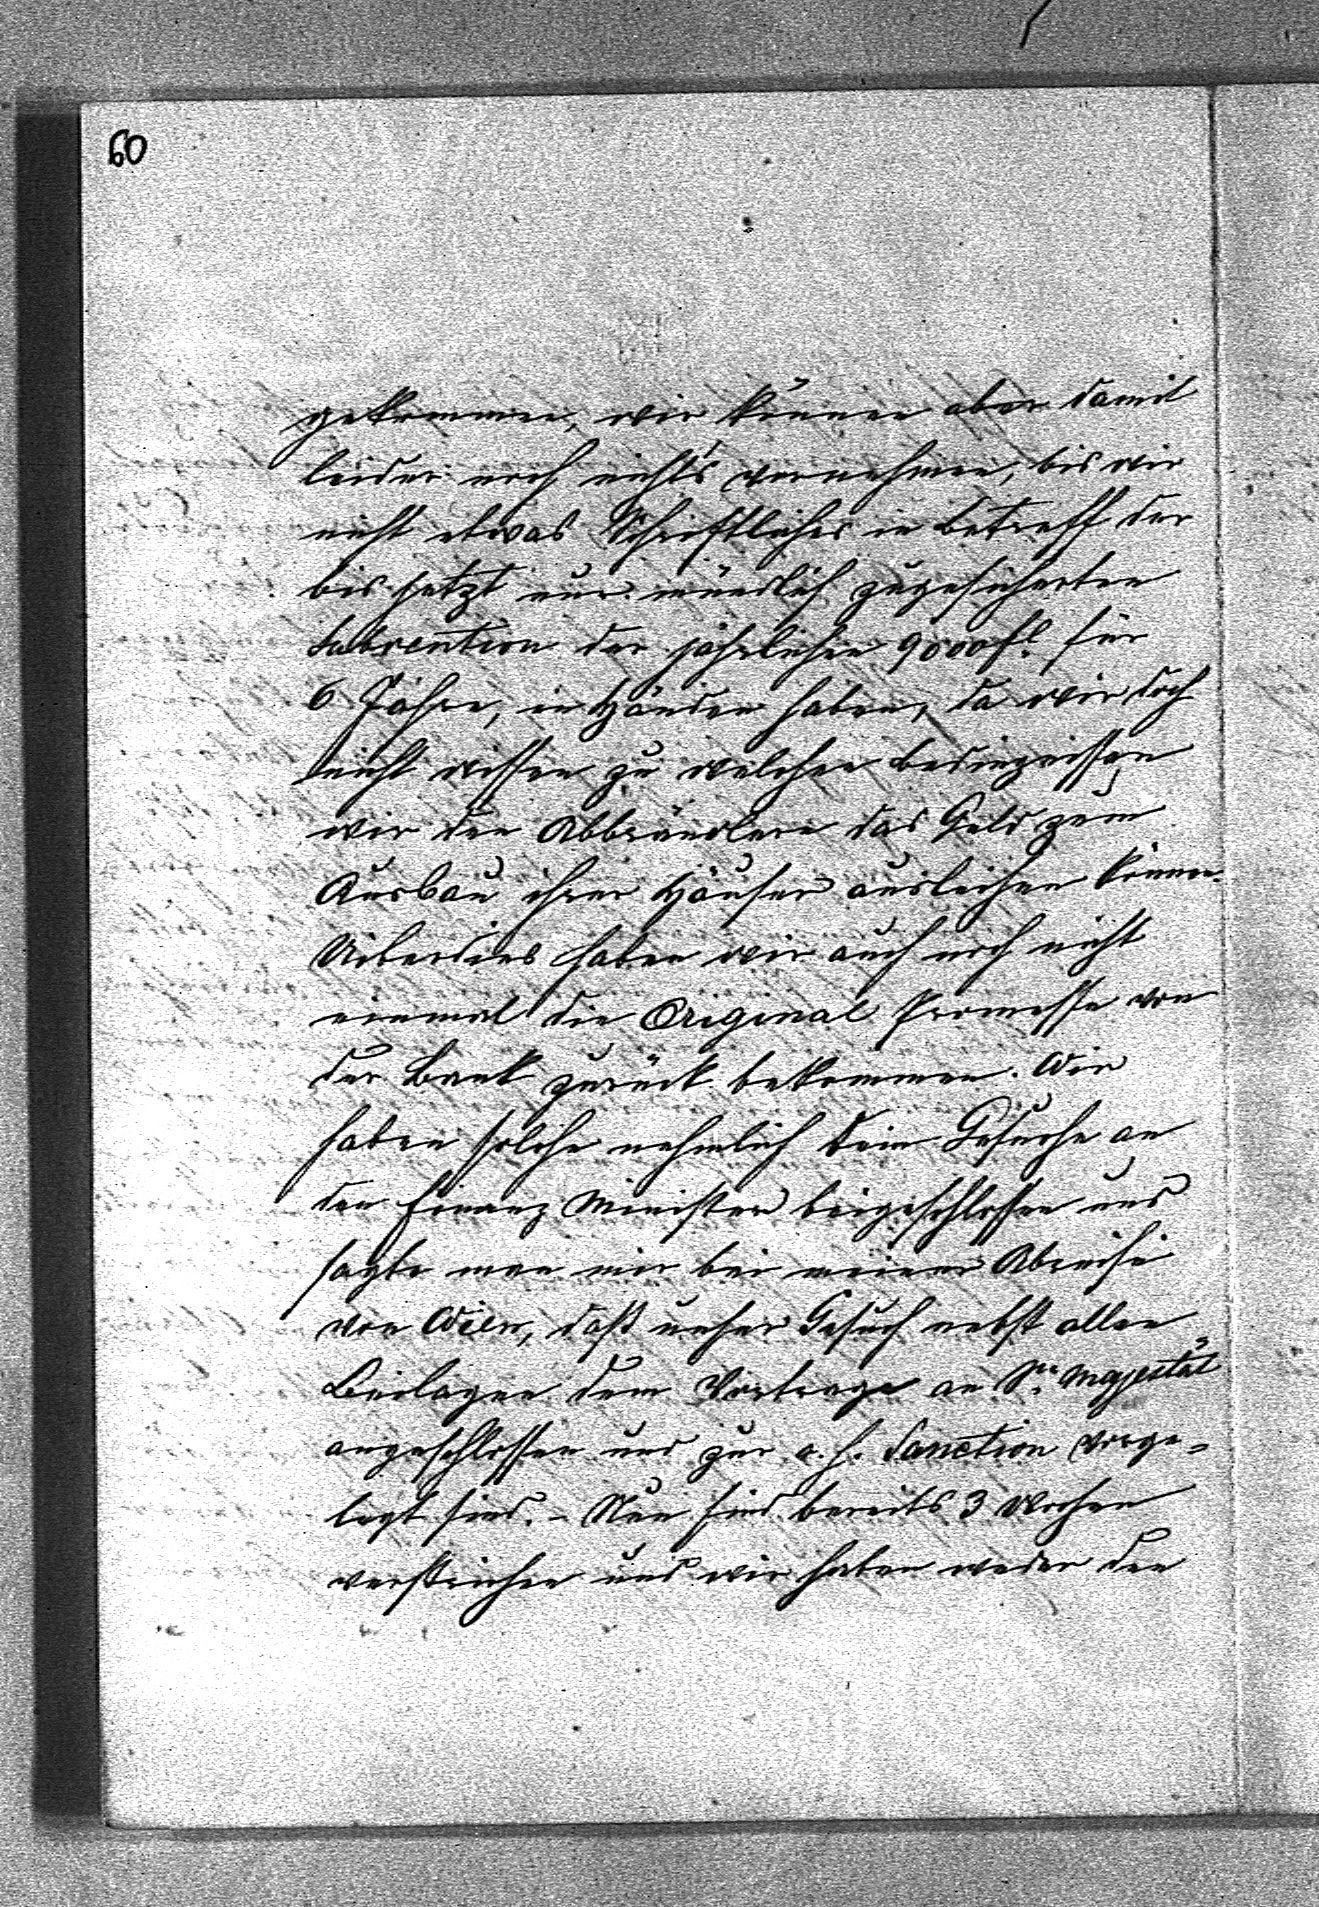 60
gekommen, wir können aber damit
leider noch nichts vornehmen, bis wir
nicht etwas Schriftliches in Betreff der
bis jetzt nur mündlich zugesicherten
Subvention der jährlichen 9000 fl. für
6 Jahre, in Händen haben, da wir doch
nicht wissen zu welchen Bedingnissen
wir den Abbrändlern das Geld zum
Ausbau ihrer Häuser ausleihen können.
Uiberdies haben wir auch noch nicht
einmal die Original Promesse von
der Bank zurück bekommen. Wir
haben solche nehmlich dem Gesuche an
den Finanz Minister beigeschlossen und
sagte man mir bei meiner Abreise
von Wien, daß unser Gesuch nebst allen
Beilagen dem Vortrage an Sr. Majestät
angeschlossen und zur a. h. Sanction vorge=
legt sind. – Nun sind bereits 3 Wochen
verstrichen und wir haben weder den